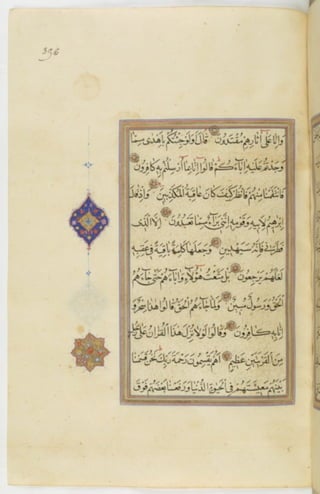 وانا على اثارهم مقتدون قال اولو جئتكم باهدى مما
وجدتم عليه اباءكم قالوا انا بما ارسلتم به كافرون
فانتقمنا منهم فانظر كيف كان عاقبة المكذبين واذ قال
ابرهيم لابيه وقومه انني براء مما تعبدون الا الذي
فطرني فانه سيهدين وجعلها كلمة باقية في عقبه
لعلهم يرجعون بل متعت هؤلاء واباءهم حتى جاءهم
الحق ورسول مبين ولما جاءهم الحق قالوا هذا سحر و
انا به كافرون وقالوا لولا نزل هذا القران على رجل
من القريتين عظيم اهم يقسمون رحمة ربك نحن قسمنا
بينهم معيشتهم في الحيوة الدنيا ورفعنا بعضهم فوق